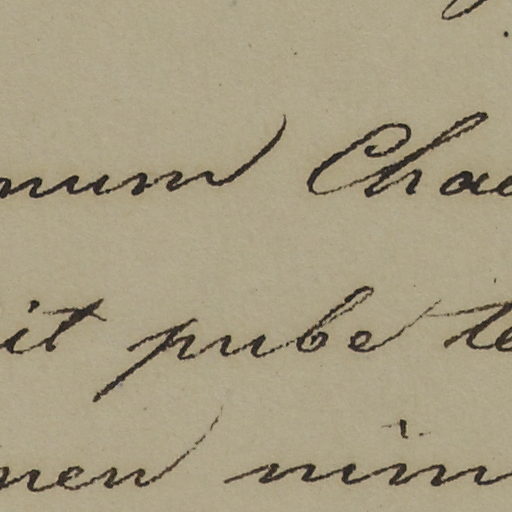 num Chae
it pube te
men nim